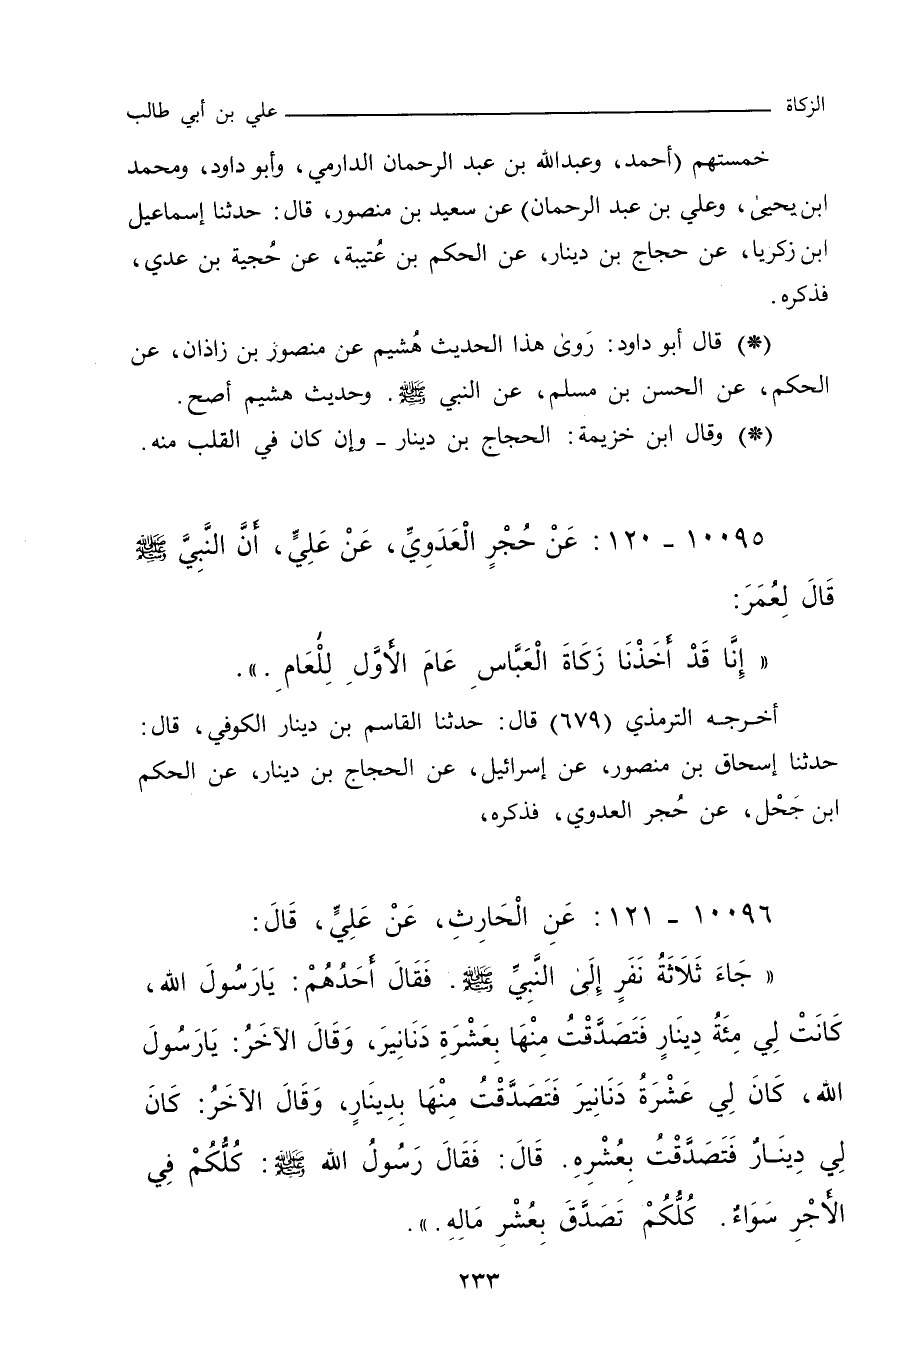 الزكاة ـــــــــــــــــــــــــــــــــــــــــــ علي بن أبي طالب
خمستهم (أحمد، وعبدالله بن عبد الرحمان الدارمي، وأبو داود، ومحمد
ابن يحيىٰ، وعلي بن عبد الرحمان) عن سعيد بن منصور، قال: حدثنا إسماعيل
ابن زكريا، عن حجاج بن دينار، عن الحكم بن عُتيبة، عن حُجية بن عدي،
فذكره.
(*) قال أبو داود: رَوىٰ هذا الحديث هُشيم عن منصور بن زاذان، عن
الحكم، عن الحسن بن مسلم، عن النبي ﷺ. وحديث هشيم أصح.
(*) وقال ابن خزيمة: الحجاج بن دينار ـ وإن كان في القلب منه.
١٠٠٩٥ ـ ١٢٠: عَنْ حُجْرٍ الْعَدَوِيِّ، عَنْ عَلِيٍّ، أَنَّ النَّبِيَّ ﷺ
قَالَ لِعُمَرَ:
« إِنَّا قَدْ أَخَذْنَا زَكَاةَ الْعَبَّاسِ عَامَ الأَوَّلِ لِلْعَامِ .».
أخـرجـه الترمذي (٦٧٩) قال: حدثنا القاسم بن دينار الكوفي، قال:
حدثنا إسحاق بن منصور، عن إسرائيل، عن الحجاج بن دينار، عن الحكم
ابن جَحْل، عن حُجر العدوي، فذكره،
١٠٠٩٦ ـ ١٢١: عَنِ الْحَارِثِ، عَنْ عَلِيٍّ، قَالَ:
« جَاءَ ثَلَاثَةُ نَفَرٍ إِلَىٰ النَّبِيِّ ﷺ. فَقَالَ أَحَدُهُمْ: يَارَسُولَ الله،
كَانَتْ لِي مِئَةُ دِينَارٍ فَتَصَدَّقْتُ مِنْهَا بِعَشْرَةِ دَنَانِيرَ، وَقَالَ الآخَرُ: يَارَسُولَ
الله، كَانَ لِي عَشْرَةُ دَنَانِيرَ فَتَصَدَّقْتُ مِنْهَا بِدِينَارٍ، وَقَالَ الآخَرُ: كَانَ
لِي دِينَـارٌ فَتَصَدَّقْتُ بِعُشْرِهِ. قَالَ: فَقَالَ رَسُولُ الله ﷺ: كُلُّكُمْ فِي
الأَجْرِ سَوَاءٌ. كُلُّكُمْ تَصَدَّقَ بِعُشْرِ مَالِهِ.».
٢٣٣